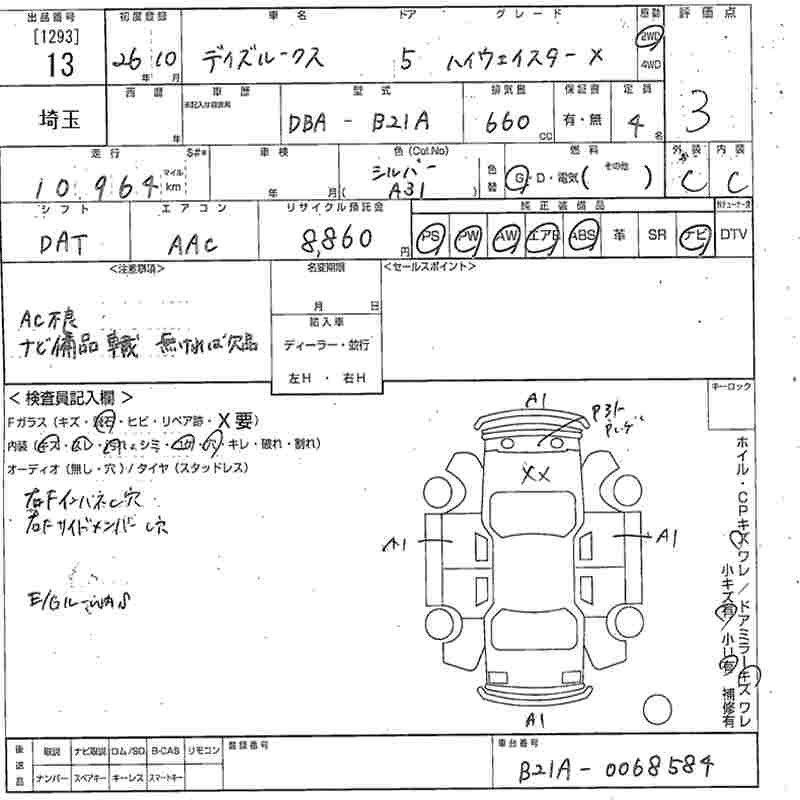 出品番号 初度登録 車名 ドア グレード 駆動 評価点
[1293]
13 26年 10月 デイズルークス 5 ハイウェイスター X 2WD 4WD 3
埼玉 西暦 年 車歴 未記入は自家用 型式 排気量 保証書 定員
DBA - B21A 660 cc 有・無 4名
走行 S#* 車検 色 (Col.No) 燃料 外装 内装
10,964 マイル km 年 月 シルバー ( A31 ) 色替 G・D・電気( その他 ) C C
シフト エアコン リサイクル預託金 純正装備品
DAT AAC 8,860円 PS PW AW エアB ABS 革 SR ナビ DTV
<注意事項> 名変期限 <セールスポイント>
月 日
AC不良 輸入車
ナビ備品 車載 無ければ欠品 ディーラー・並行
左H ・ 右H
<検査員記入欄> キーロック
Fガラス (キズ・飛石・ヒビ・リペア跡・X要)
内装 (キズ・ムレ・汚れ・シミ・コゲ・穴・キレ・破れ・割れ)
オーディオ (無し・穴) / タイヤ (スタッドレス)
右Fインパネビ穴
右Fサイドメンバービ穴
E/Gルーム内S
A1
XX
A1 A1
A1
ホイル・CPキズ ワレ / ドアミラーキズ ワレ
小キズ有 / 小U有 補修有
後送品 取説 ナビ取説 ロム/SD B-CAS リモコン 登録番号 車台番号
ナンバー スペアキー キーレス スマートキー B21A-0068584